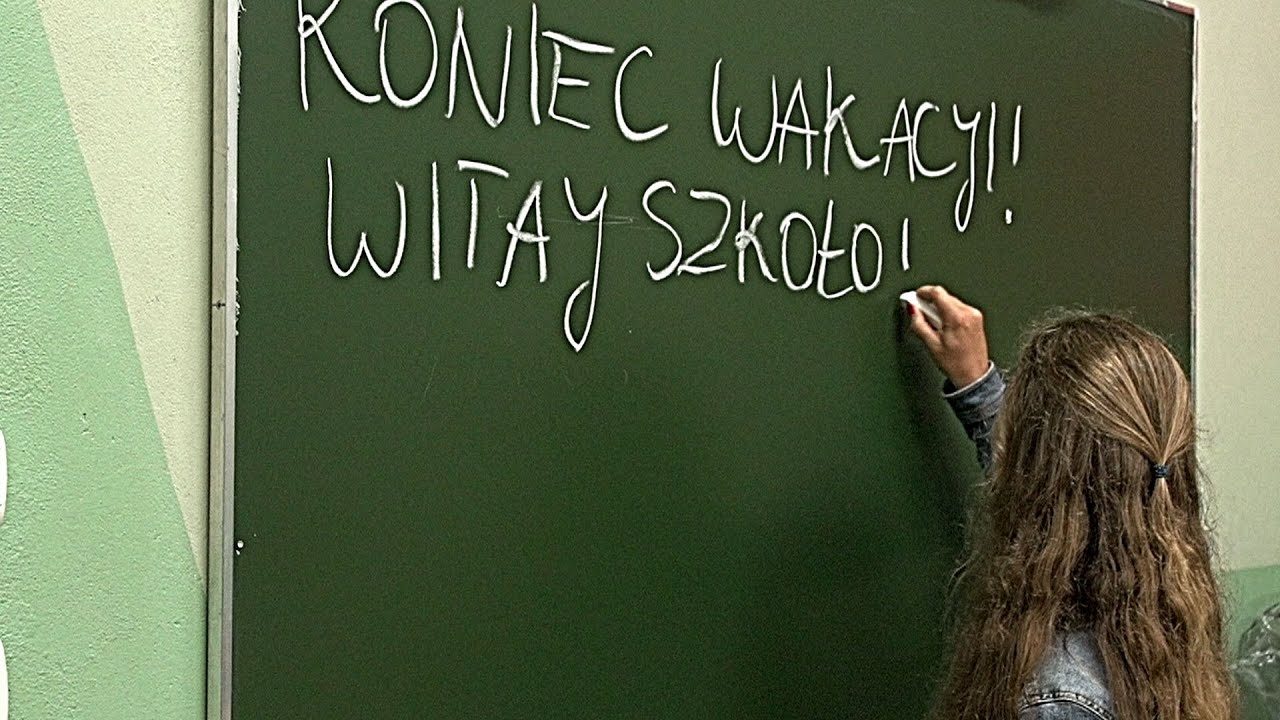 KONIEC WAKACYI!
WITAY SZKOŁO!